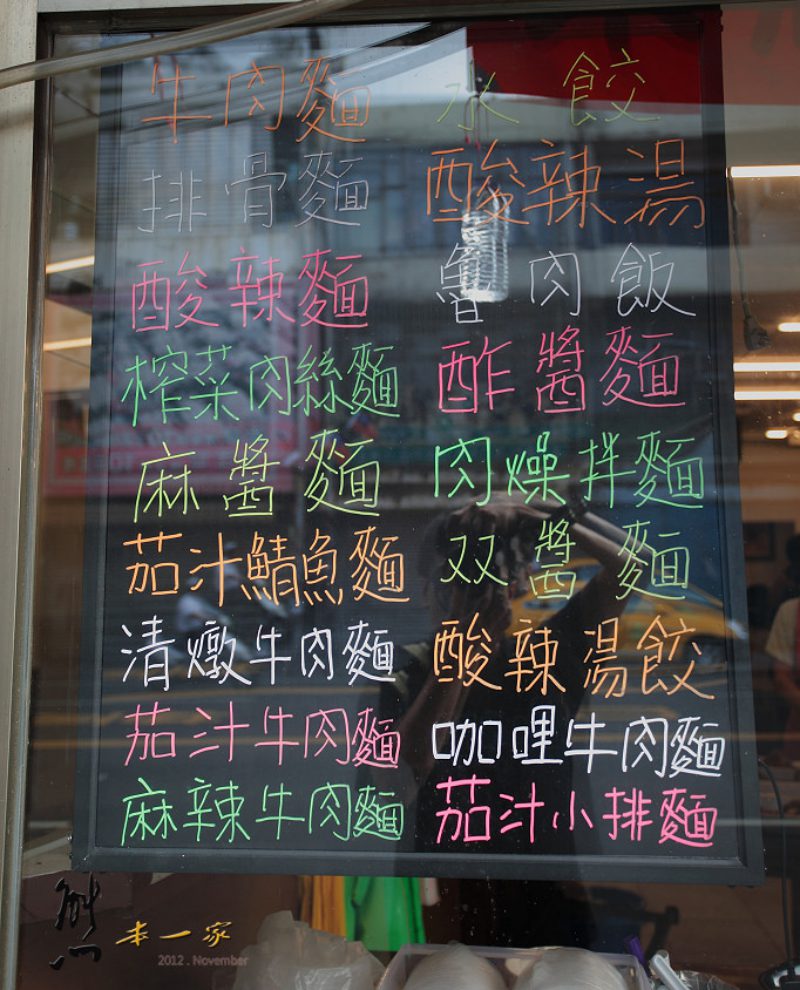 牛肉麵
排骨麵
酸辣麵
榨菜肉絲麵
麻醬麵
茄汁鯖魚麵
清燉牛肉麵
茄汁牛肉麵
麻辣牛肉麵
水餃
酸辣湯
魯肉飯
酢醬麵
肉燥拌麵
双醬麵
酸辣湯餃
咖哩牛肉麵
茄汁小排麵
熊
本一家
2012 . November